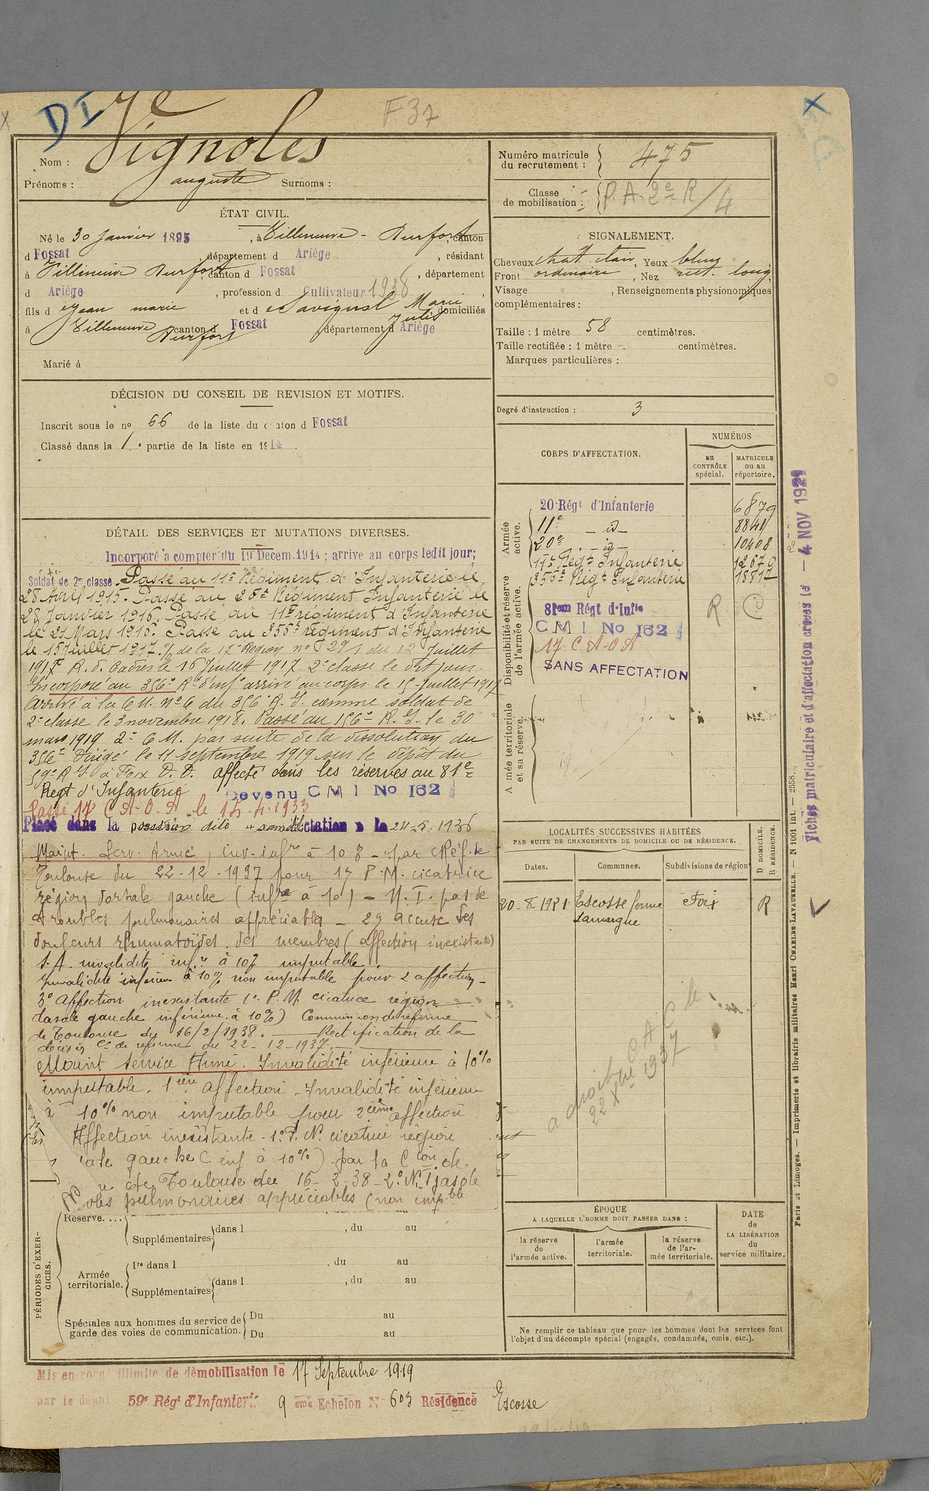 DI
F37
Nom : Vignoles
Prénoms : auguste Surnoms :
Numéro matricule du recrutement : 475
Classe de mobilisation : P.A. 2e R/4
ÉTAT CIVIL.
Né le 30 Janvier 1895, à Villeneuve - Durfort, canton
d Fossat département d Ariège, résidant
à Villeneuve Durfort, canton d Fossat, département
d Ariège, profession d Cultivateur 1938
fils d Jean marie et d Marie Julie domiciliés
à Villeneuve Durfort canton d Fossat département d Ariège
Marié à
SIGNALEMENT.
Cheveux chat. clair, Yeux bleus
Front ordinaire, Nez rect. long
Visage , Renseignements physionomiques
complémentaires :
Taille : 1 mètre 58 centimètres.
Taille rectifiée : 1 mètre centimètres.
Marques particulières :
Degré d'instruction : 3
DÉCISION DU CONSEIL DE REVISION ET MOTIFS.
Inscrit sous le no 66 de la liste du canton d Fossat
Classé dans la 1re partie de la liste en 191
DÉTAIL DES SERVICES ET MUTATIONS DIVERSES.
Incorporé à compter du 19 Décem. 1914 ; arrivé au corps ledit jour;
Soldat de 2e classe. Passé au 11e Régiment d'Infanterie le
28 Avril 1915. Passé au 20e Régiment Infanterie le
28 Janvier 1916. Passé au 11e régiment d'Infanterie
le 21 Mars 1916. Passé au 356e régiment d'Infanterie
le 15 Juillet 1917. de la 17e Région no 291 du 12 Juillet
1917 le 16 Juillet 1917. 2e classe le dit jour.
Incorporé au 356e Rt d'inf arrivé au corps le 15 Juillet 1917
Arrivé à la C.M. No 4 du 356 R.I. comme soldat de
2e classe le 3 novembre 1918. Passé au 156e R.I. le 30
mars 1919 2e C.M. par suite de la dissolution du
356e Dirigé le 11 septembre 1919 sur le dépôt du
59e R.I. à Foix D.D. affecté dans les réserves au 81e
Régt d'Infanterie Devenu C M I No 162
Passé 17 C.A.O.A. le 15.4.1933
Placé dans la position dite "sans affectation" le 24-5.1936
Maint. Serv. Armé, Inv. infre à 10% - par
Toulouse du 22-12-1937 pour 1o P.M. cicatrice
région dorsale gauche (infre à 10) - N.I. pas de
troubles pulmonaires appréciables - 2o accuse des
douleurs rhumatoïdes des membres (affection inexistante)
S.A. invalidité infre à 10% imputable.
Invalidité inférieure à 10% non imputable pour 2 affection -
3o Affection inexistante 1o P.M. cicatrice région
dorsale gauche inférieure à 10%) Commission de réforme
de Toulouse du 16/2/1938. Rectification de la
décision Con de réforme du 22-12-1937.
Maint service Armé. Invalidité inférieure à 10%
imputable. 1ère affection. Invalidité inférieure
à 10% non imputable pour 2ème affection
Affection inexistante - 1o P.M. cicatrice région
gauche inf à 10%) par la Con de
de Toulouse du 16-2-38 - 2o N.I. pas de
pulmonaires appréciables (non impble
CORPS D'AFFECTATION.
NUMÉROS
au CONTRÔLE spécial.
MATRICULE ou au répertoire.
Armée active.
20 Régt d'Infanterie 6879
11e id 8841
20e id 10408
11e Régt Infanterie 12679
356e Régt Infanterie 18877
Disponibilité et réserve de l'armée active.
81em Régt d'Infie R
C M I No 162
17 C.A.O.A
SANS AFFECTATION
Armée territoriale et sa réserve.
LOCALITÉS SUCCESSIVES HABITÉES
PAR SUITE DE CHANGEMENTS DE DOMICILE OU DE RÉSIDENCE.
Dates. Communes. Subdivisions de région
D DOMICILE. R RÉSIDENCE.
20.X.1921 Escosse ferme Lamargue Foix R
1937
ÉPOQUE
A LAQUELLE L'HOMME DOIT PASSER DANS :
la réserve de l'armée active.
l'armée territoriale.
la réserve de l'armée territoriale.
DATE de LA LIBÉRATION du service militaire.
Ne remplir ce tableau que pour les hommes dont les services font
l'objet d'un décompte spécial (engagés, condamnés, omis, etc.).
PÉRIODES D'EXERCICES.
Réserve....
dans l , du au
Supplémentaires
Armée territoriale.
1re dans l , du au
Supplémentaires dans l , du au
Spéciales aux hommes du service de garde des voies de communication.
Du au
Du au
Mis en congé illimité de démobilisation le 17 Septembre 1919
par le dépôt 59e Régt d'Infanterie 9 ème Echelon No 603 Résidence Escosse
Fiches matriculaire et d'affectation créées le - 4 NOV 1921
Paris et Limoges. — Imprimerie et librairie militaires Henri CHARLES-LAVAUZELLE. — N 1001 int. — 2558.